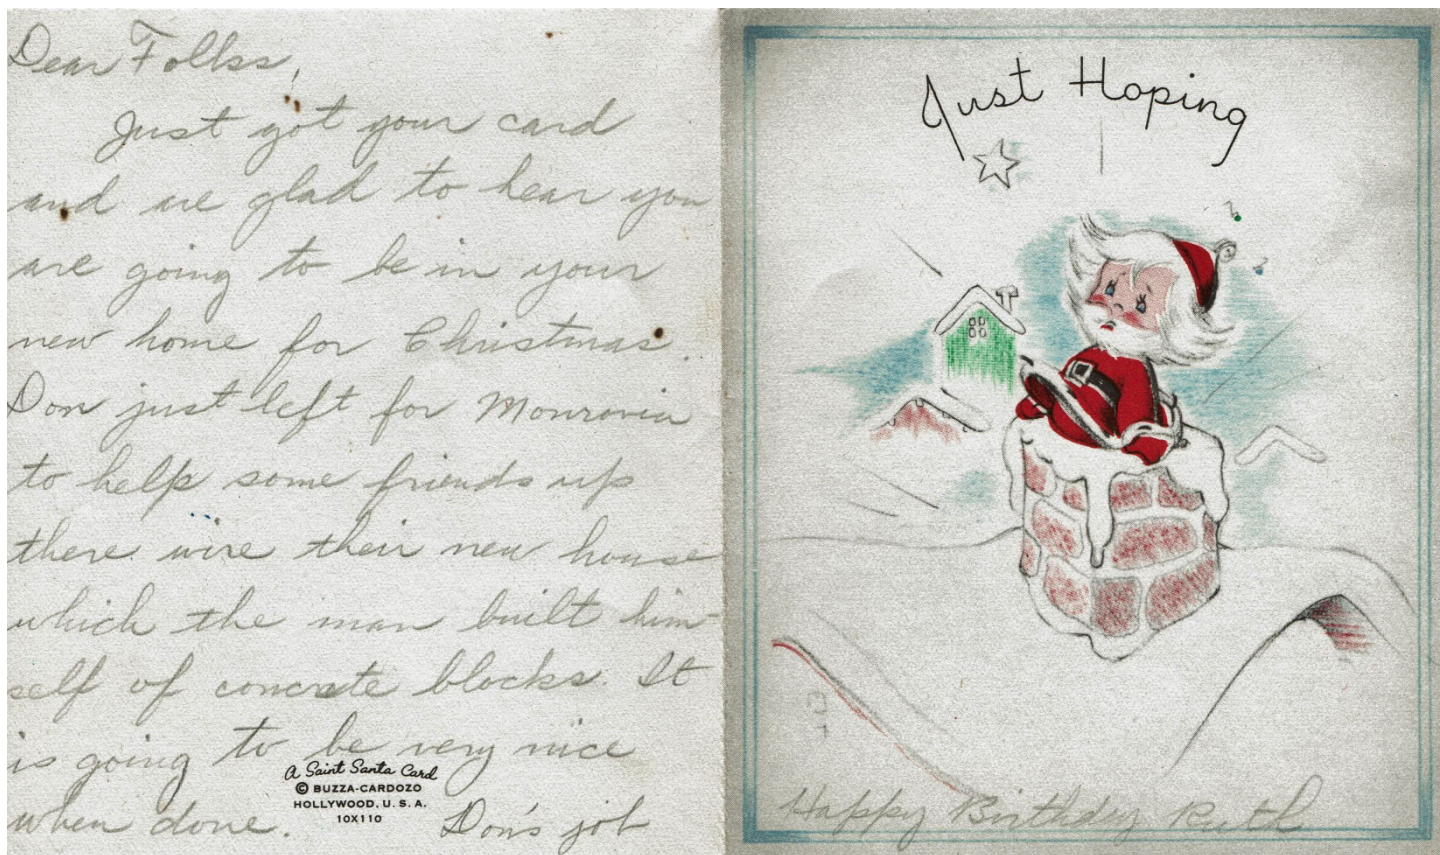 Dear Folks,
Just got your card
and are glad to hear you
are going to be in your
new home for Christmas.
Don just left for Monrovia
to help some friends up
there wire their new house
which the man built him-
self of concrete blocks. It
is going to be very nice
when done. Don's job
A Saint Santa Card
© BUZZA-CARDOZO
HOLLYWOOD, U. S. A.
10X110
Just Hoping
Happy Birthday Ruth